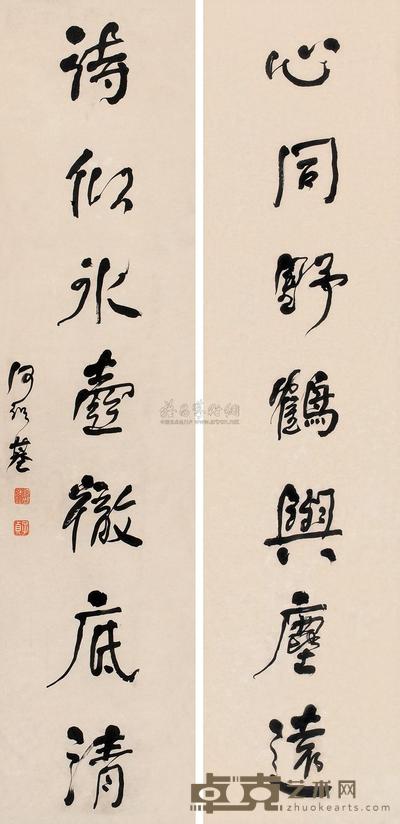 心同野鶴與塵遠
詩似冰壺徹底清
何紹基
卓克艺术网
zhuokearts.com